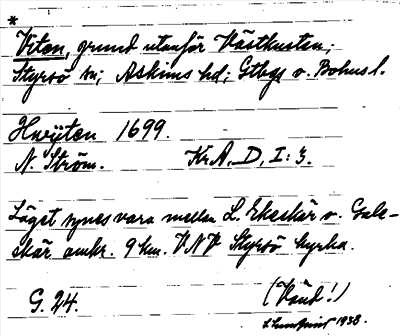 *
Viten, grund utanför Västkusten;
Styrsö sn; Askims hd; Gtbgs o. Bohus l.
Hwijten 1699.
N. Ström. KrA, D, I: 3.
Läget synes vara mellan L. Ekeskär o. Gale-
skär omkr. 9 km. VNV Styrsö kyrka.
G. 24. (Vänd!)
1938.